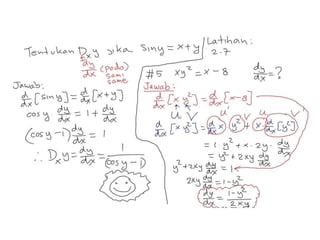 Tentukan Dₓy jika sin y = x + y
dy/dx (pada sama same)
Jawab:
d/dx [sin y] = d/dx [x + y]
cos y dy/dx = 1 + dy/dx
(cos y - 1) dy/dx = 1
∴ Dₓy = dy/dx = 1/(cos y - 1)
Latihan:
2.7
#5 xy² = x - 8 dy/dx = ?
Jawab:
d/dx [xy²] = d/dx [x - 8]
U V U V U V
d/dx [xy²] = d/dx x · y² + x · d/dx [y²]
= 1 · y² + x · 2y · dy/dx
= y² + 2xy dy/dx
y² + 2xy dy/dx = 1
2xy dy/dx = 1 - y²
dy/dx = (1 - y²)/(2xy)